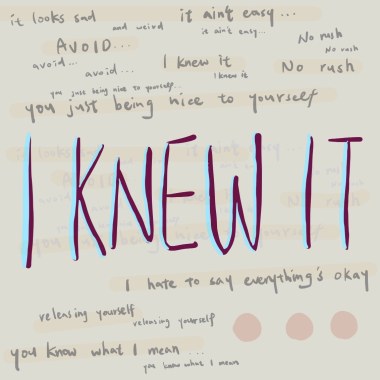 it looks sad
and weird
it ain't easy...
is ain't easy...
AVOID...
No rush
No rush
avoid...
I knew it
I knew it
avoid...
No rush
you just being nice to yourself...
you just being nice to yourself
I KNEW IT
I hate to say everything's okay
releasing yourself
releasing yourself
you know what I mean ...
you know what I mean